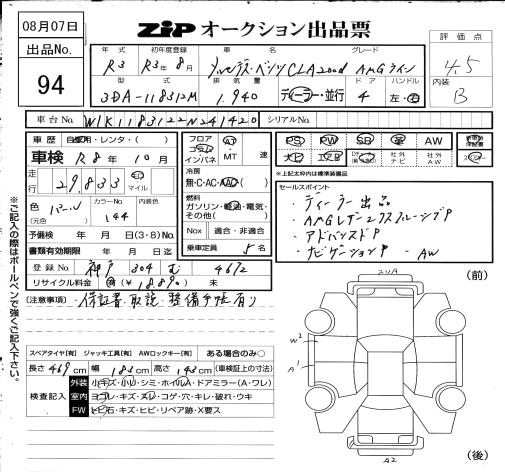 08月07日
ZIP オークション出品票
出品No.
94
年式 初年度登録 車名 グレード
R3 R3年8月 メルセデス・ベンツCLA200d AMGライン
型式 排気量 ドア ハンドル
3DA-118312M 1.940 ディーラー・並行 4 左・右
評価点
4.5
内装
B
車台No. W1K1183122N241420 シリアルNo.
車歴 自家用・レンタ・( )
車検 R8年10月
走行 29,833 km マイル
色 (元色) カラーNo. 144 内装色
予備検 年 月 日(3・8)No.
書類有効期限 年 月 日迄
登録No. 神戸 304 む 4672
リサイクル料金 有(¥18890) 未
フロア コラム インパネ AT MT 速
冷房 無・C・AC・AAC( )
燃料 ガソリン・軽油・電気・その他( )
Nox 適合・非適合
乗車定員 5名
PS PW SR 革 AW
エアB 社外ナビ 社外AW
※上記太枠内は標準装備品
セールスポイント
・ディーラー出品
・AMGレザーエクスクルーシブP
・アドバンスドP
・ナビゲーションP ・AW
[注意事項] 保証書・取説・整備手帳有り
スペアタイヤ[有] ジャッキ工具[有] AWロックキー[有] ある場合のみ○
長さ469cm 幅183cm 高さ143cm (車検証上の寸法)
検査記入
外装 小キズ・小凹・シミ・ホイルA・ドアミラー(A・ワレ)
室内 ヨゴレ・キズ・スレ・コゲ・穴・キレ・破れ・ウキ
FW ヒビ石・キズ・ヒビ・リペア跡・X要ス
※ご記入の際はボールペンで強くご記入下さい。
(前)
W2
A1
A2
(後)